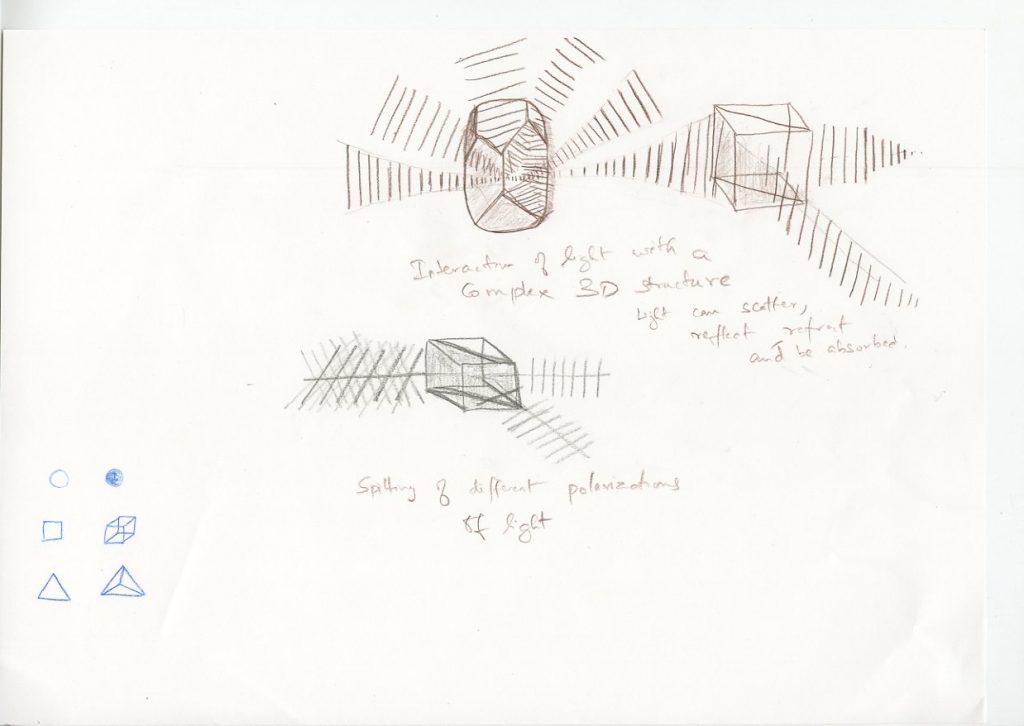 Interaction of light with a
Complex 3D structure
Light can scatter,
reflect refract
and be absorbed.
Spliting of different polarizations
of light